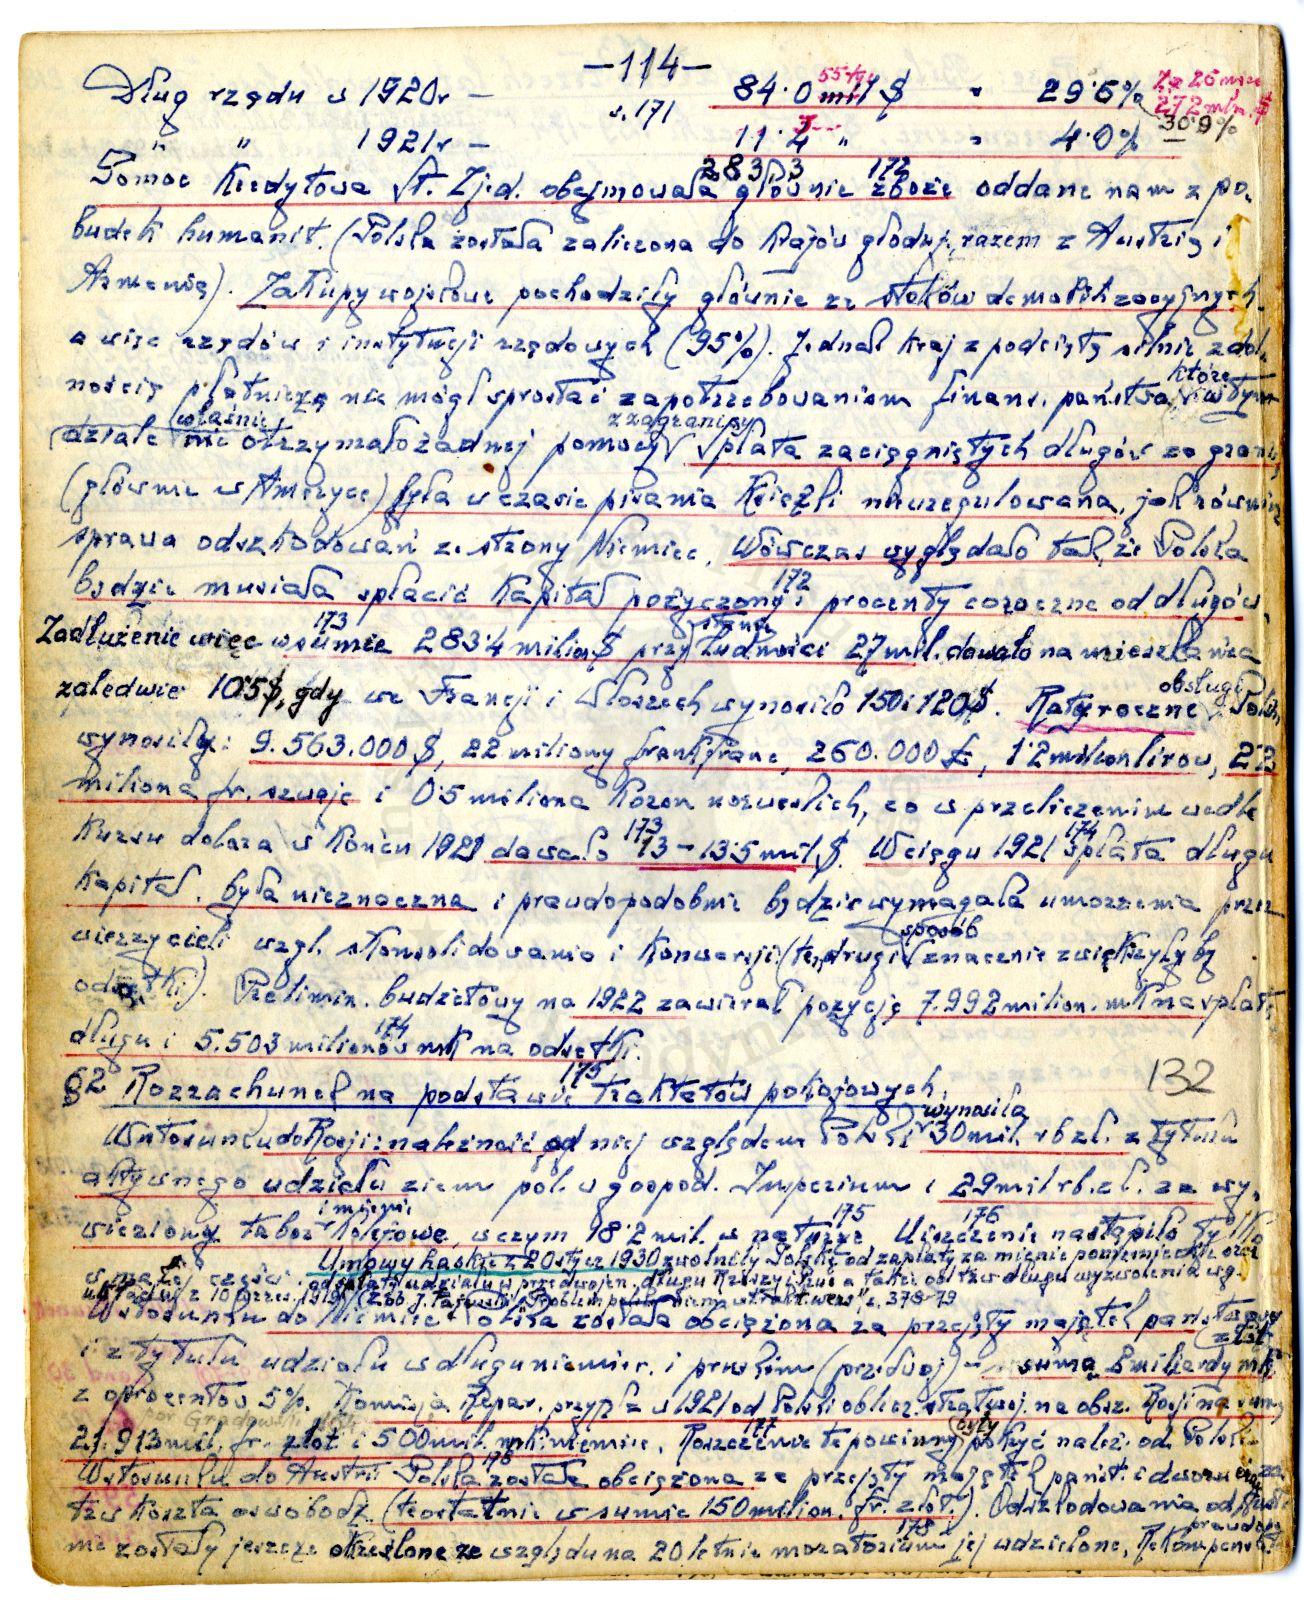 —114—
Dług rządu w 1920r — s.171 84.0 mil $ " 29.6%
55 tys
Za 26 mies
272 mln. $
30.9%
" " 1921r — 11.4 " " 4.0%
283,3 172
Pomoc Kredytowa St. Zjed. obejmowała głównie zboże oddane nam z po-
budek humanit. (Polska została zaliczona do krajów głoduj. razem z Austrią i
Armenią). Zakupy wojskowe pochodziły głównie ze stoków demobilizacyjnych
a więc rządów i instytucji rządowych (95%). Jednak kraj z podciętą silnie zdol-
nością płatniczą nie mógł sprostać zapotrzebowaniom finans. państwa, które w tym
dziale właśnie nie otrzymało żadnej pomocy z zagranicy. Spłata zaciągniętych długów zagran.
(głównie w Ameryce) była w czasie pisania Książki nieuregulowana, jak również
sprawa odszkodowań ze strony Niemiec. Wówczas wyglądało tak, że Polska
będzie musiała spłacić Kapitał pożyczony i procenty coroczne od długów 172
Zadłużenie więc w sumie 283.4 milion $ przy stanie ludności 27 mil. dawało na mieszkańca 173
zaledwie 10.5 $, gdy we Francji i Włoszech wynosiło 150 i 120 $. Raty roczne obsługi Polski
wynosiły: 9.563.000 $, 22 miliony frank. franc, 260.000 £, 1.2 milion lirów, 2.3
miliona fr. szwajc i 0.5 miliona koron norweskich, co w przeliczeniu wedle
Kursu dolara w końcu 1921 dawało 13 – 13.5 mil $. W ciągu 1921 spłata długu 173 174
Kapitał. była nieznaczna i prawdopodobnie będzie wymagała umorzenia przez
wierzycieli wzgl. skonsolidowania i konwersji (ten drugi sposób znacznie zwiększyłby
odsetki). Prelimin. budżetowy na 1922 zawierał pozycję 7.992 milion. mk na spłatę
długu i 5.503 milionów mk na odsetki. 174
§2 Rozrachunek na podstawie traktatów pokojowych. 175 132
W stosunku do Rosji: należność od niej względem Polski wynosiła 30 mil. rb zł. z tytułu
aktywnego udziału ziem pol. w gospod. Imperium i 29 mil rb. zł. za wy-
wieziony tabor kolejowy i mienie, w czym 18.2 mil. w naturze 175 Uiszczenie nastąpiło tylko 176
w małej części. Umowy haskie z 20 stycz 1930 zwolniły Polskę od zapłaty za mienie poniemieckie oraz
od spłaty udziału w przedwojen. długu Rzeszy i Prus a także od tzw długu wyzwolenia wg.
układu z 10 wrześ. 1919 (Zob J. Łajewski "Problem polsk. niem. w trakt. wers" s. 378-79
W stosunku do Niemiec Polska została obciążona za przejęty majątek państwowy
i z tytułu udziału w długu niemiec. i pruskim (przedwoj) – sumą 2 miliardy mk złot
z oprocentow 5%. Komisja Repar. przyjęła w 1921 od Polski oblicz. strat woj. na obsz. Rosji na sumę
21.913 mil. fr. złot i 500 mil. mk. niemiec. Roszczenie te powinny były pokryć należ. od Polski 177
W stosunku do Austrii Polska została obciążona za przejęty majątek państ. i dworu oraz za 178
tzw koszta oswobodz. (teoretatnie w sumie 150 milion. fr. złot.). Odszkodowania od Austrii
nie zostały jeszcze określone ze względu na 20 letnie moratorium jej udzielone. 178 Rekompensata prawdop.